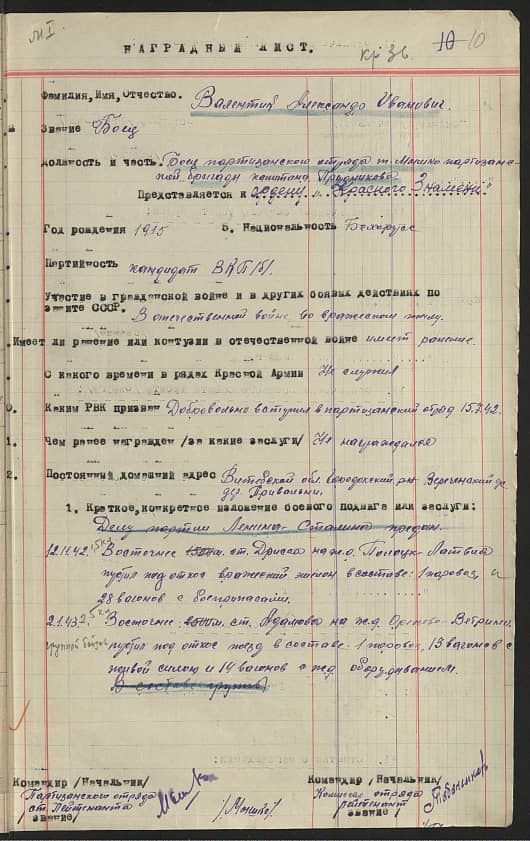 НАГРАДНЫЙ ЛИСТ.
10
Фамилия, Имя, Отчество. Валентик Александр Иванович.
Звание Боец
Должность и часть. Боец партизанского отряда
бригады капитана Прудникова
Представляется к ордену "Красного Знамени"
Год рождения 1915 5. Национальность Белорусс
Партийность кандидат ВКП/б/.
Участие в гражданской войне и в других боевых действиях по
защите СССР. В отечественной войне, во вражеском тылу.
Имеет ли ранение или контузии в отечественной войне имеет ранение.
С какого времени в рядах Красной Армии Не служил
0. Каким РВК призван Добровольно вступил в партизанский отряд 15.7.42.
1. Чем ранее награжден /за какие заслуги/ Не награждался
2. Постоянный домашний адрес Витебской обл. Городокский р-н
1. Краткое, конкретное изложение боевого подвига или заслуги:
Делу партии Ленина-Сталина предан.
12.11.42. Восточнее ст. Дрисса на ж.д. Полоцк-Латвия
пустил под откос вражеский эшелон в составе: 1 паровоз, и
28 вагонов с боеприпасами.
2.1.43. Восточнее ст. Адамово на ж.д.
группой бойцов пустил под откос поезд в составе 1 паровоз, 13 вагонов с
живой силой и 14 вагонов с ж.д. оборудованием.
В составе группы
Командир /Начальник/ Командир /Начальник/
Партизанского отряда Комиссар отряда
ст. лейтенант лейтенант
звание/ звание/